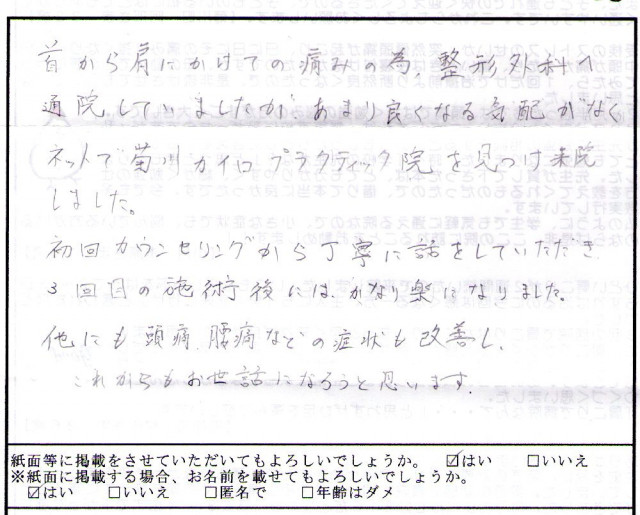 首から肩にかけての痛みの為、整形外科へ
通院していましたが あまり良くなる気配がなく
ネットで菊川カイロプラクティック院を見つけ来院
しました。
初回カウンセリングから丁寧に話をしていただき
3回目の施術後には、かなり楽になりました。
他にも頭痛、腰痛などの症状も改善し、
これからもお世話になろうと思います。
紙面等に掲載をさせていただいてもよろしいでしょうか。 ☑はい □いいえ
※紙面に掲載する場合、お名前を載せてもよろしいでしょうか。
☑はい □いいえ □匿名で □年齢はダメ